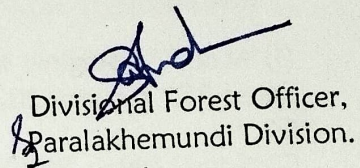 Divisional Forest Officer,
Paralakhemundi Division.